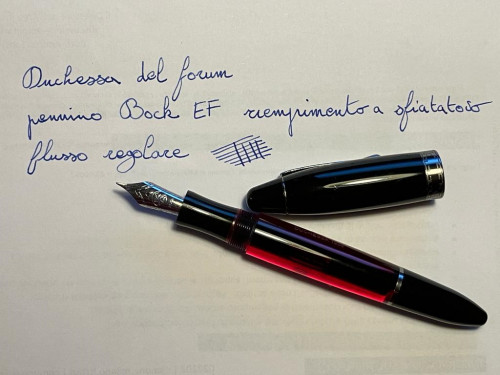 Duchessa del forum
pennino Bock EF riempimento a sfiatatoio
flusso regolare